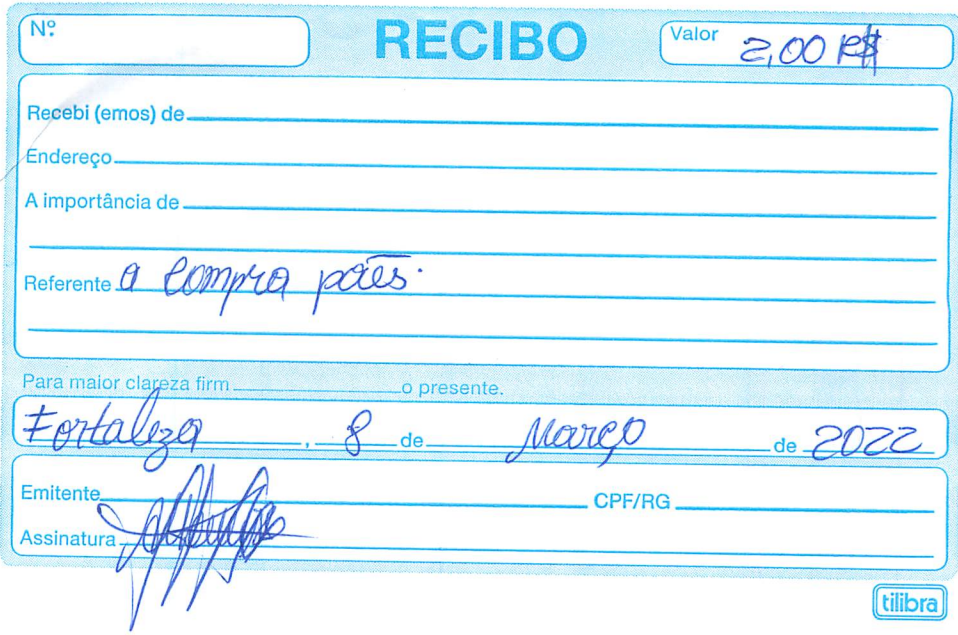 Nº RECIBO Valor 2,00 R$
Recebi (emos) de
Endereço
A importância de
Referente a compra pães.
Para maior clareza firm o presente.
Fortaleza, 8 de Março de 2022
Emitente CPF/RG
Assinatura
tilibra